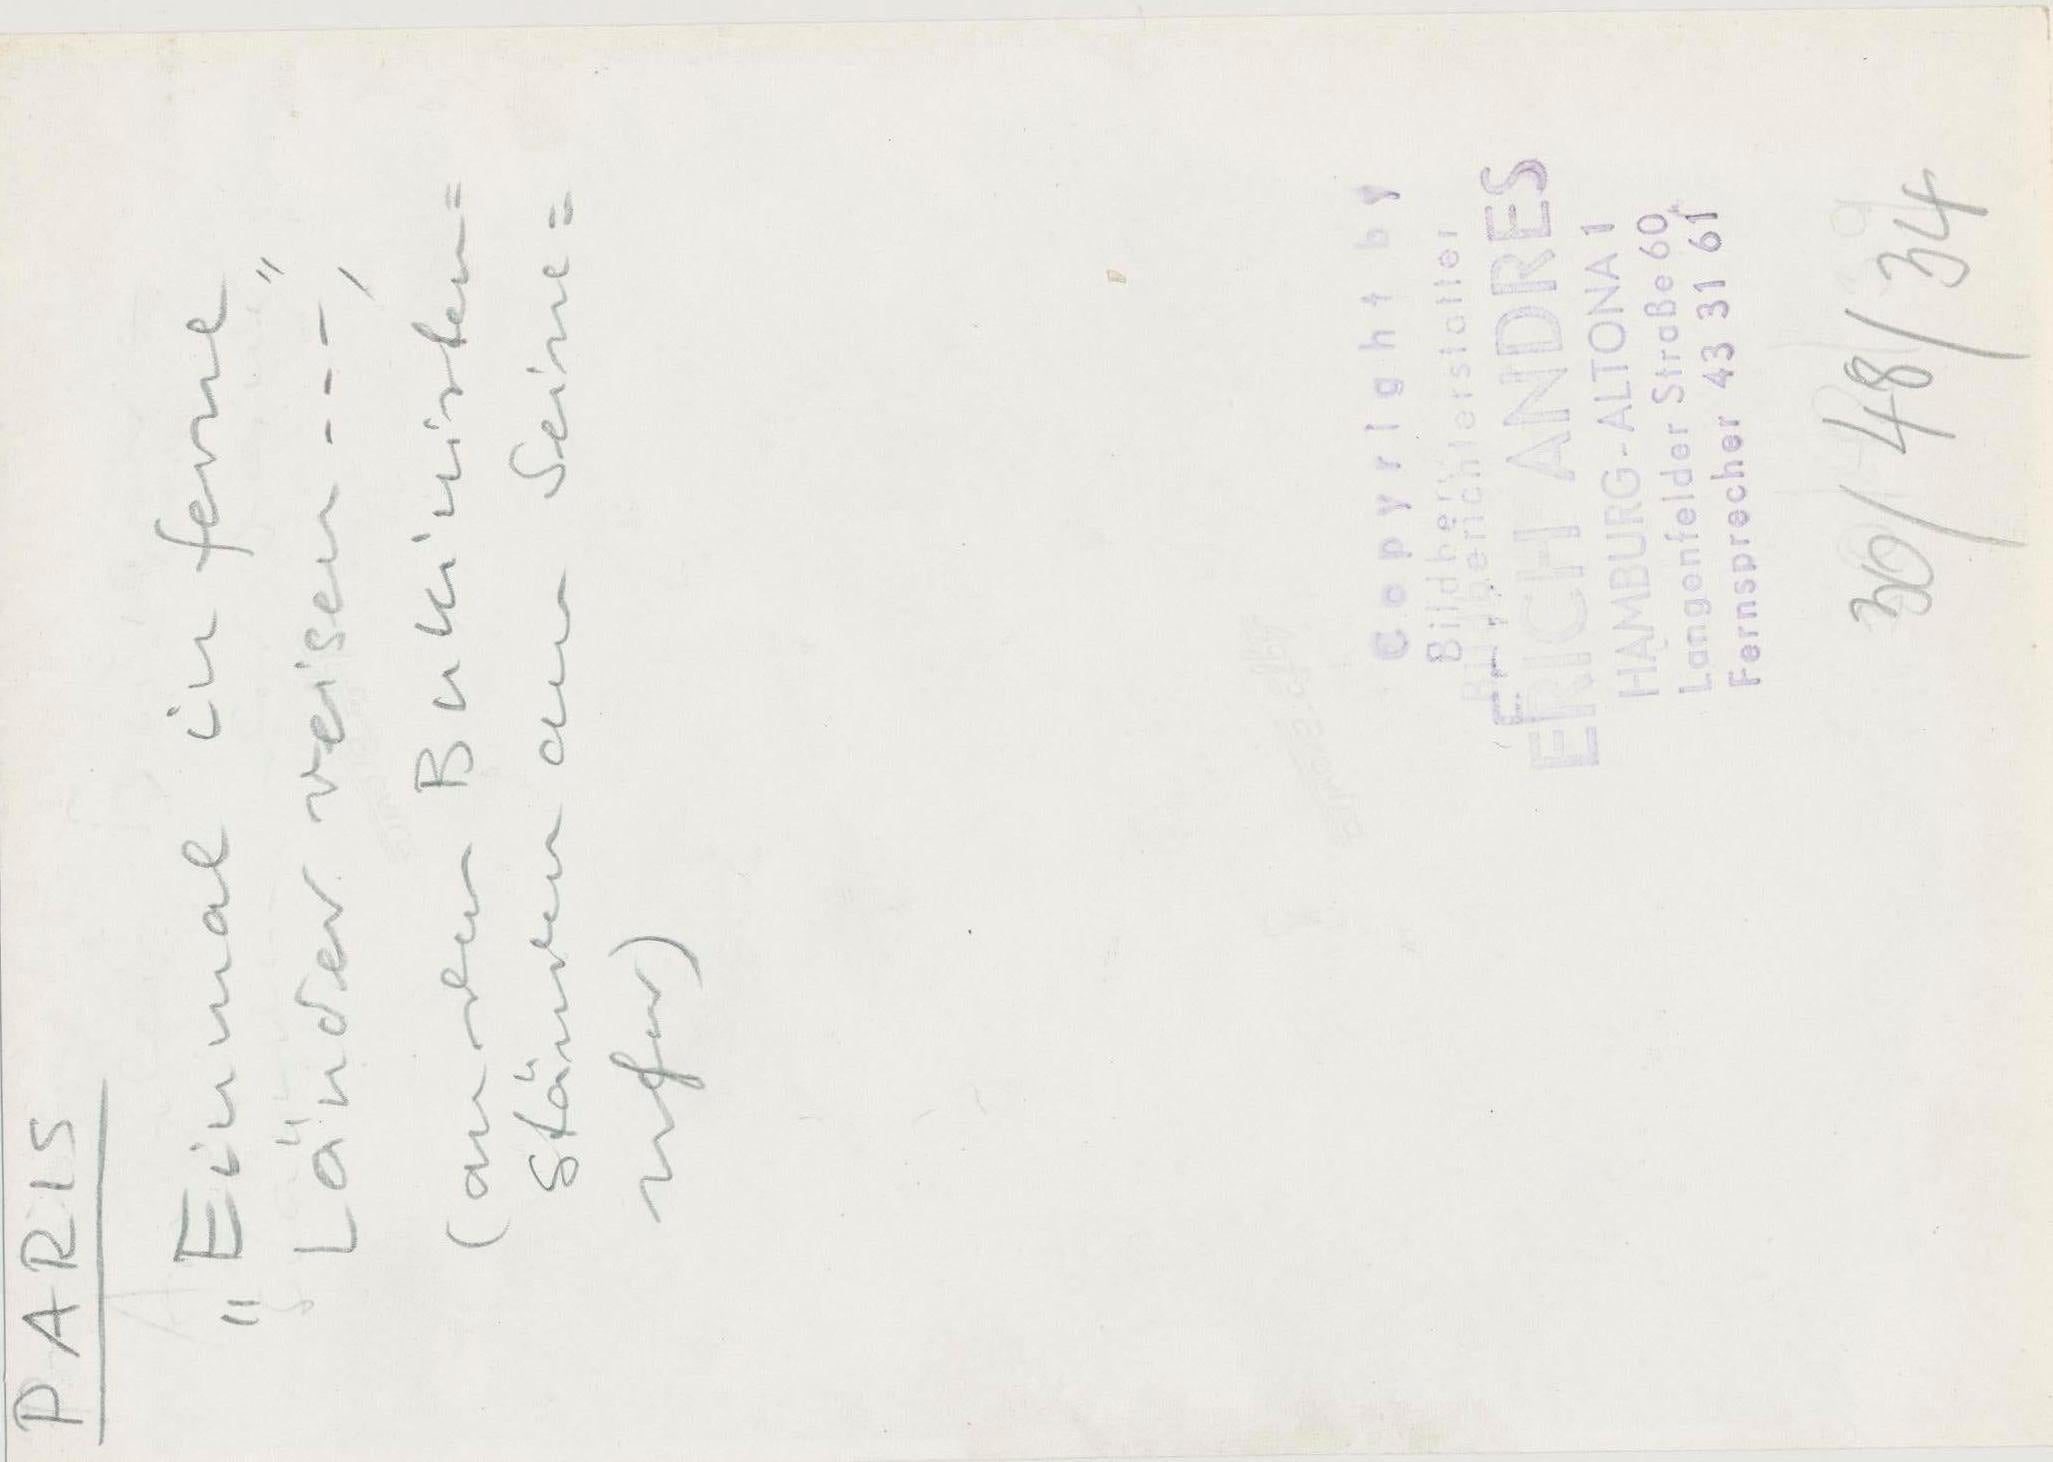 PARIS
"Einmal in ferne
Länder reisen ---"
(an den Bukinisten=
ständen am Seine=
ufer)
Copyright by
Bildberichterstatter
ERICH ANDRES
HAMBURG-ALTONA 1
Langenfelder Straße 60
Fernsprecher 43 31 61
30/48/34